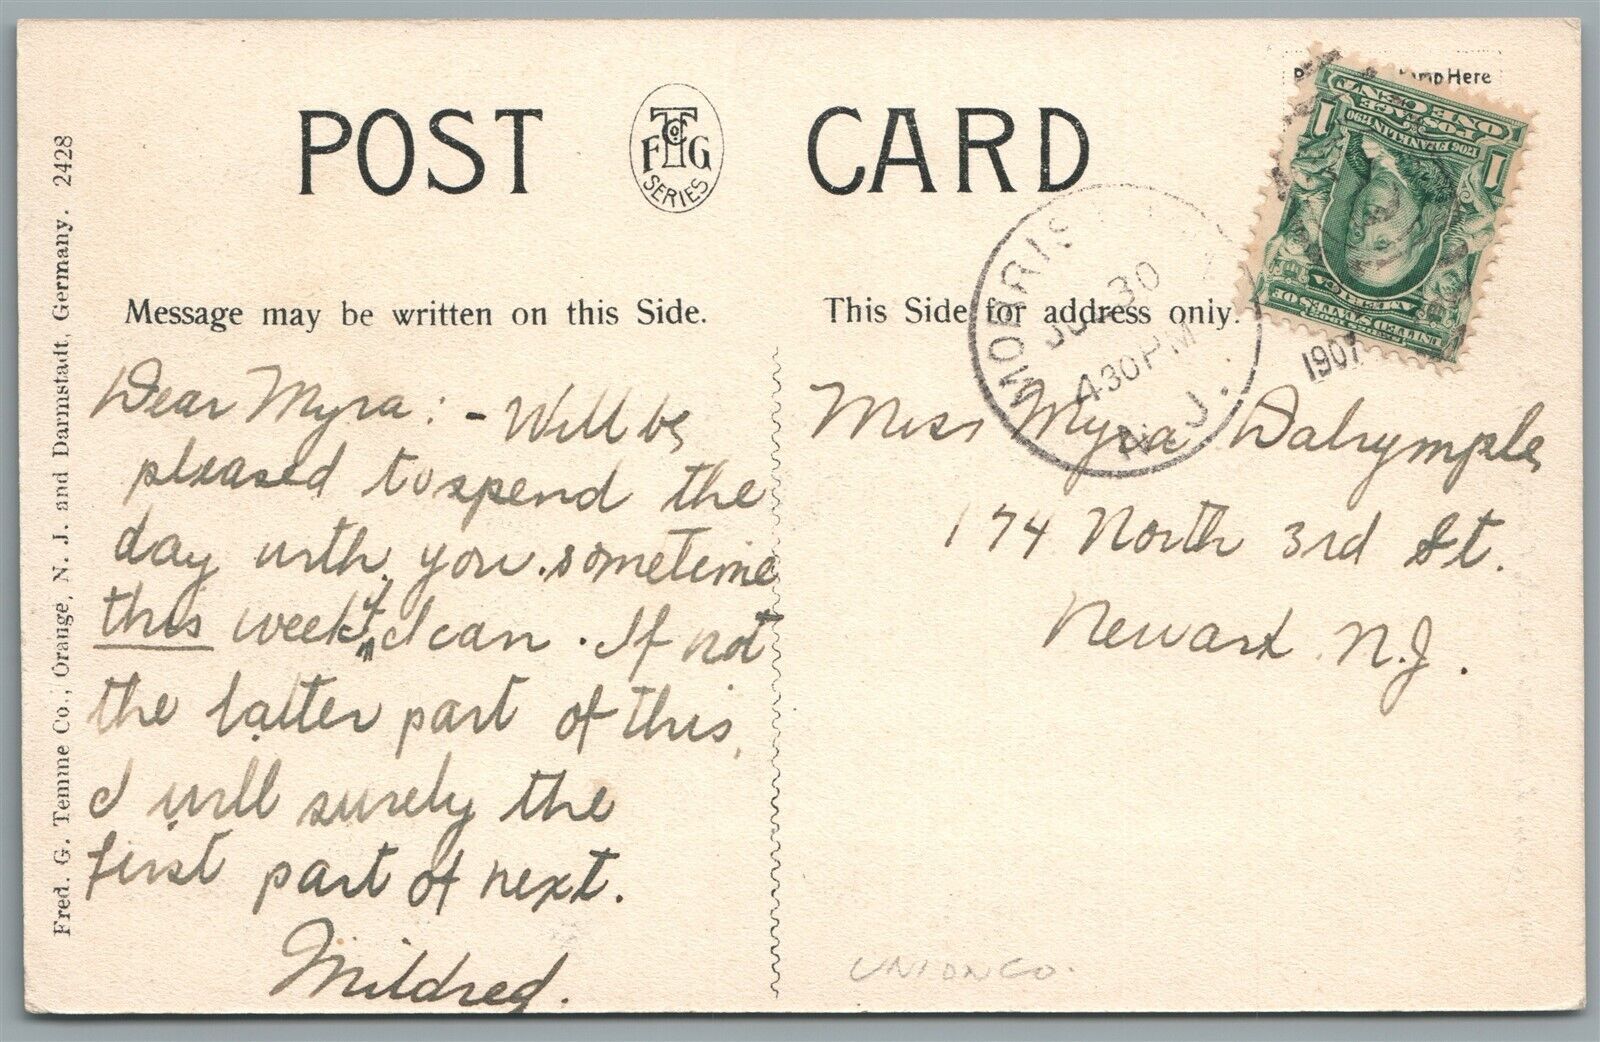 POST CARD
T Co. of
F G
SERIES
Stamp Here
ONE CENT
POSTAGE
1706 FRANKLIN 1790
1 1
UNITED STATES OF
AMERICA
MORRIS
30
430 PM
N.J.
1907
Message may be written on this Side.
This Side for address only.
Fred. G. Temme Co., Orange, N. J. and Darmstadt, Germany. 2428
Dear Myra: - Will be
pleased to spend the
day with you sometime
this week if I can. If not
the latter part of this,
I will surely the
first part of next.
Mildred.
Miss Myra Dalrymple,
174 North 3rd St.
Newark N.J.
UNION CO.